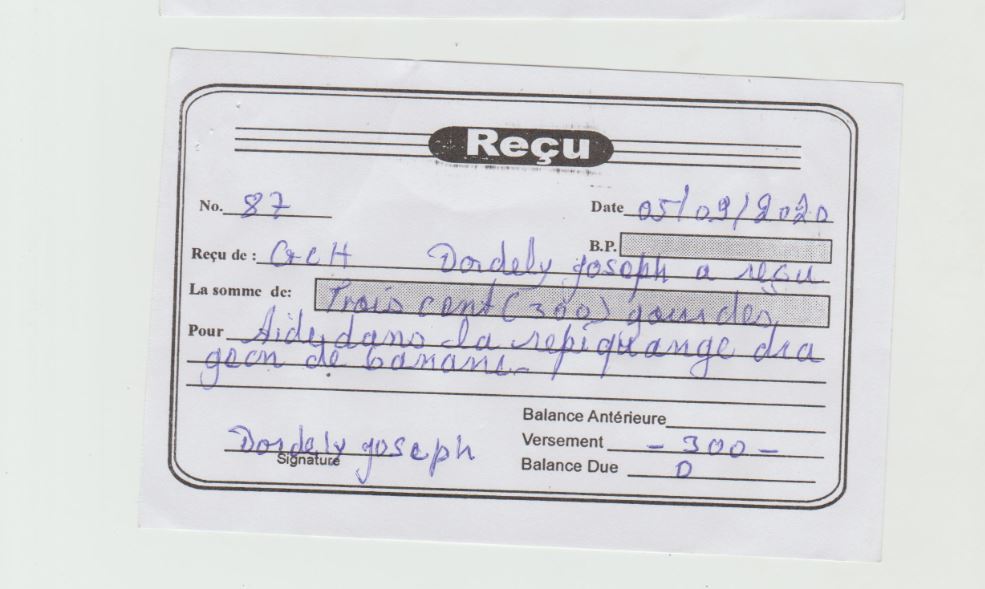 Reçu
No. 87
Date 05/09/2020
B.P.
Reçu de : GCH Dordely joseph a reçu
La somme de: Trois cent (300) gourdes
Pour Aide dans la repiquange dra
geon de banane-
Balance Antérieure
Versement - 300 -
Balance Due 0
Dordely joseph
Signature